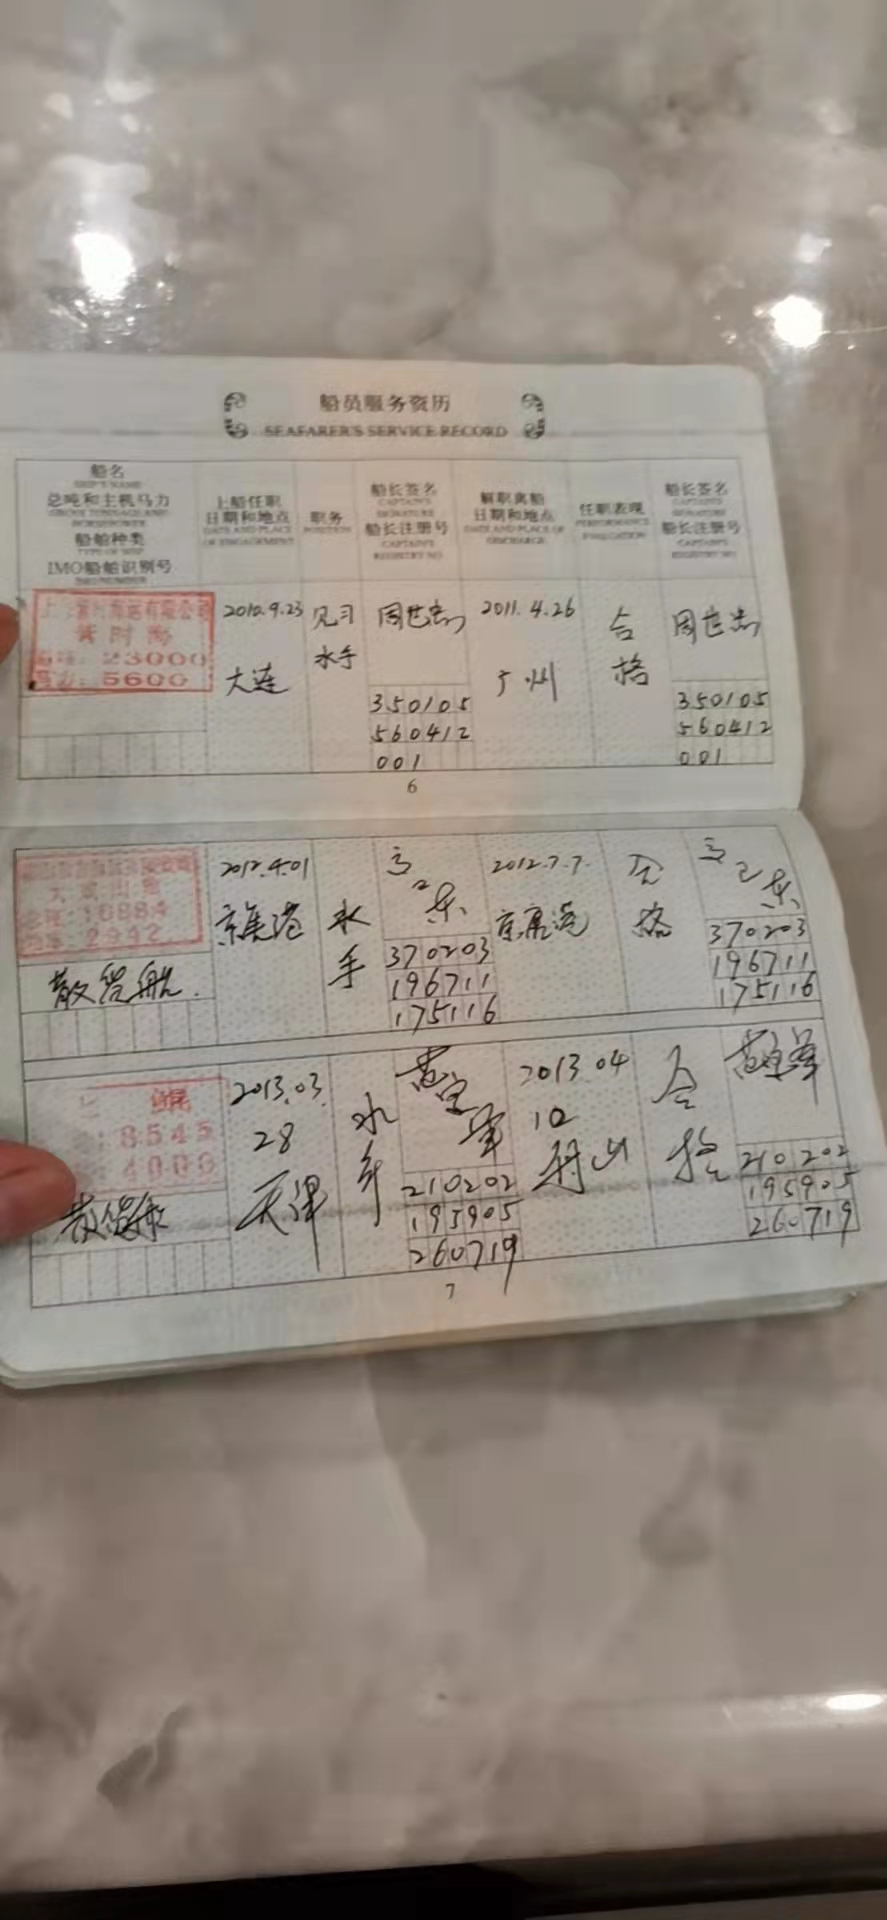 船员服务资历
SEAFARER'S SERVICE RECORD
船名
SHIP'S NAME
总吨和主机马力
GROSS TONNAGE AND
HORSEPOWER
船舶种类
TYPE OF SHIP
IMO船舶识别号
IMO NUMBER
上船任职
日期和地点
DATE AND PLACE
OF ENGAGEMENT
职务
POSITION
船长签名
CAPTAIN'S
SIGNATURE
船长注册号
CAPTAIN'S
REGISTRY NO
解职离船
日期和地点
DATE AND PLACE OF
DISCHARGE
任职表现
PERFORMANCE
EVALUATION
船长签名
CAPTAIN'S
SIGNATURE
船长注册号
CAPTAIN'S
REGISTRY NO
海运有限公司
23000
5600
2010.9.23
大连
见习
水手
周世忠
350105
560412
001
2011.4.26
广州
合
格
周世忠
350105
560412
001
6
10884
2942
散货船
2012.4.01
水
手
370203
196711
175116
2012.7.7.
合
格
370203
196711
175116
8545
4000
散货船
2013.03.
28
天津
水
手
210202
195905
260719
2013.04
10
舟山
合
格
210202
195905
260719
7